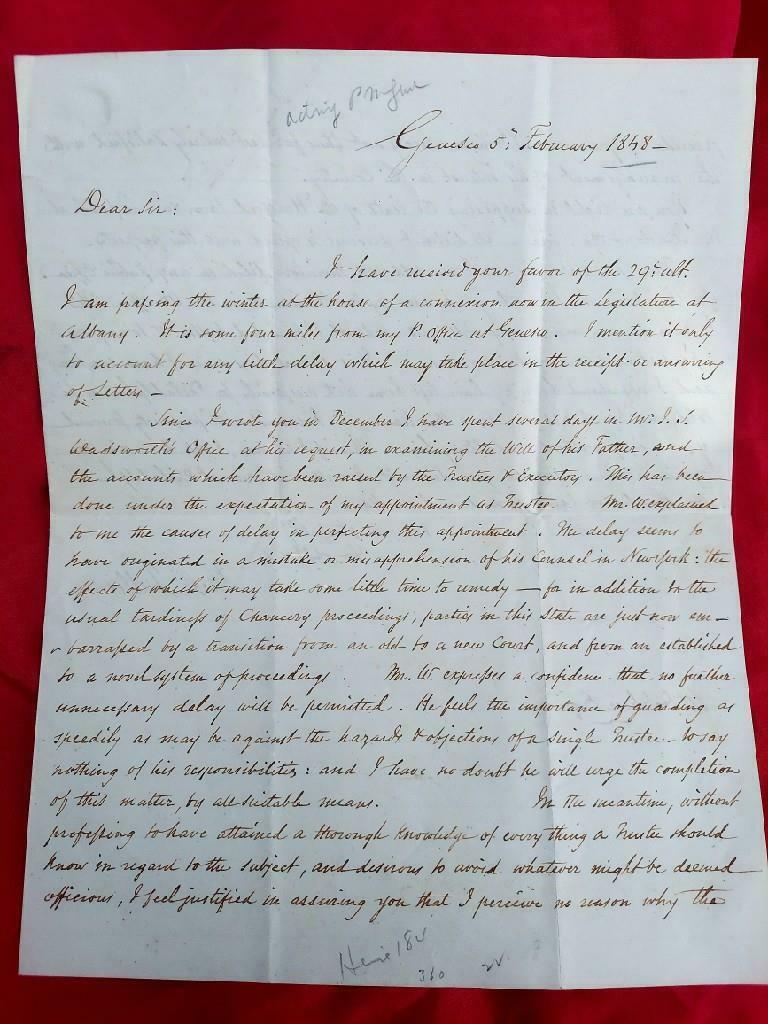 acting P M
Genesco 5th February 1848 -
Dear Sir:
I have received your favor of the 29th ult.
I am passing the winter at the house of a connexion now in the Legislature at
Albany. It is some four miles from my P. Office at Geneseo. I mention it only
to account for any little delay which may take place in the receipt or answering
of Letters -
Since I wrote you in December I have spent several days in Mr. J. S.
Wadsworth's Office at his request, in examining the Will of his Father, and
the accounts which have been raised by the Trustees & Executors. This has been
done under the expectation of my appointment as Trustee. Mr. W explained
to me the causes of delay in perfecting this appointment. The delay seems to
have originated in a mistake or misapprehension of his Counsel in New York: the
effects of which it may take some little time to remedy - for in addition to the
usual tardiness of Chancery proceedings, parties in this State are just now em-
barrassed by a transition from an old to a new Court, and from an established
to a novel system of proceedings. Mr. W expresses a confidence that no further
unnecessary delay will be permitted. He feels the importance of guarding as
speedily as may be against the hazards & objections of a single Trustee - to say
nothing of his responsibilities: and I have no doubt he will urge the completion
of this matter, by all suitable means. In the meantime, without
professing to have attained a thorough knowledge of everything a Trustee should
know in regard to the subject, and desirous to avoid whatever might be deemed
officious, I feel justified in assuring you that I perceive no reason why the
360